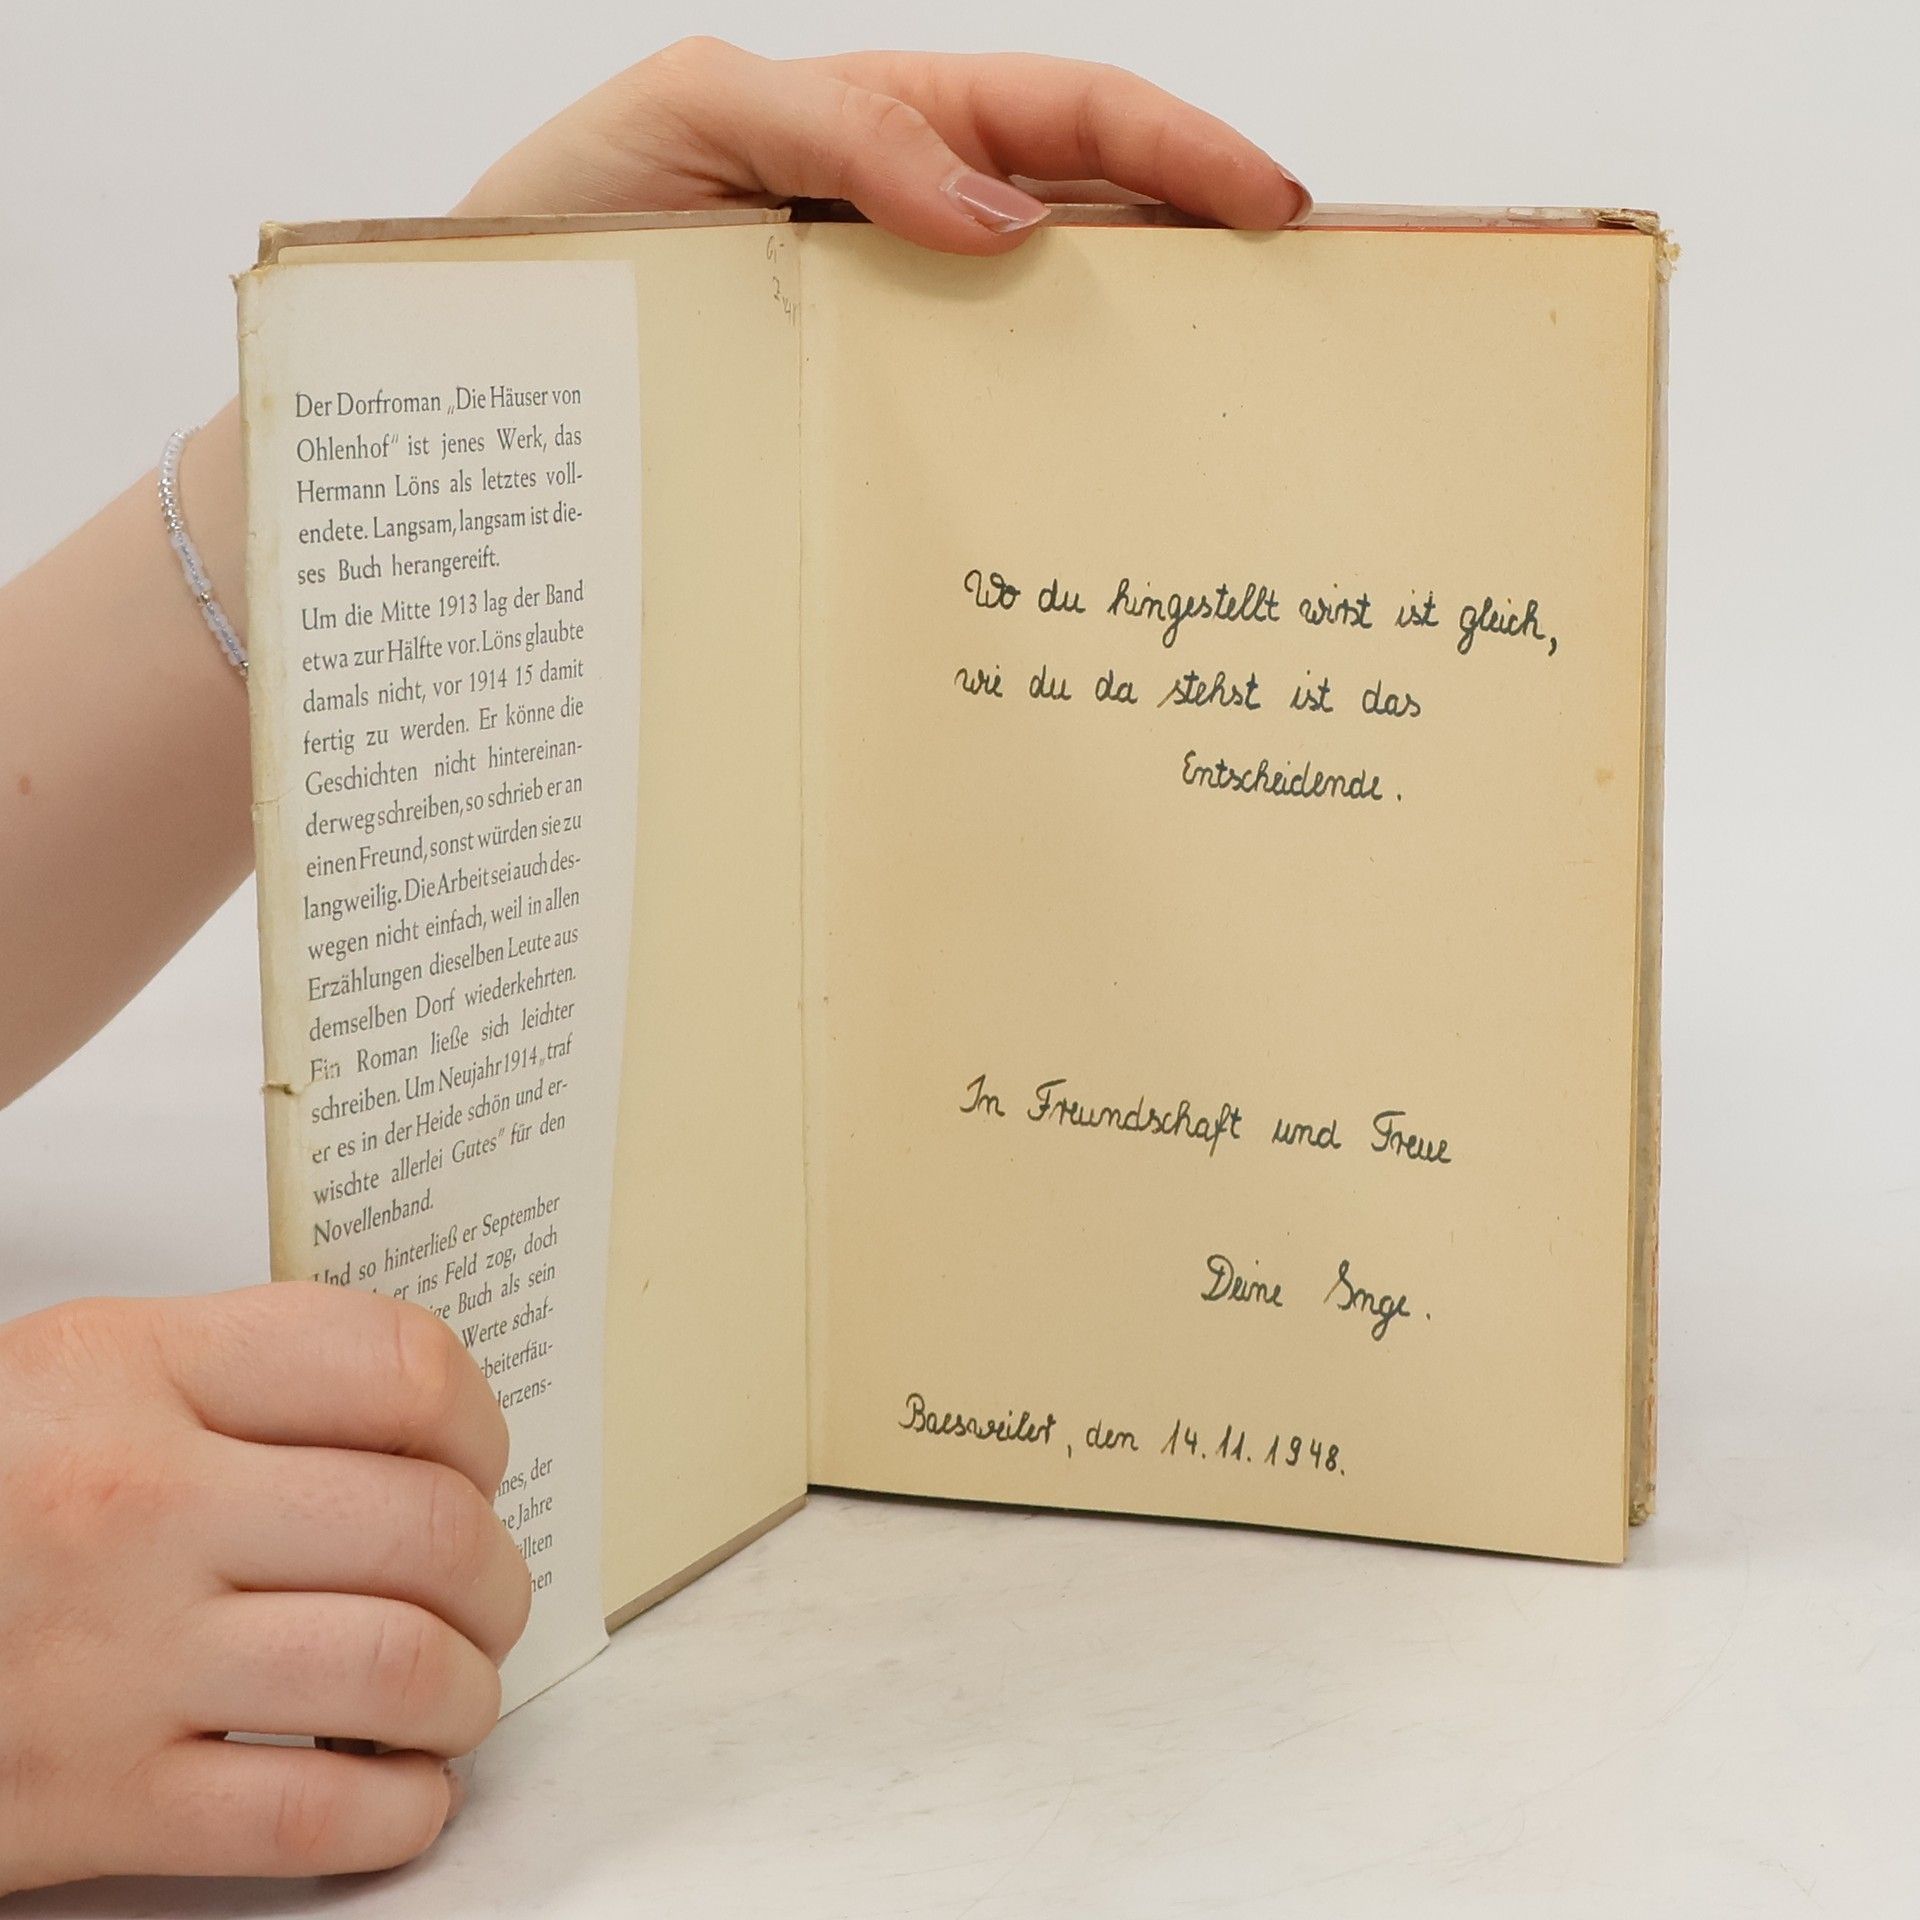 Der Dorfroman „Die Häuser von
Ohlenhof" ist jenes Werk, das
Hermann Löns als letztes voll-
endete. Langsam, langsam ist die-
ses Buch herangereift.
Um die Mitte 1913 lag der Band
etwa zur Hälfte vor. Löns glaubte
damals nicht, vor 1914 15 damit
fertig zu werden. Er könne die
Geschichten nicht hintereinan-
derwegschreiben, so schrieb er an
einen Freund, sonst würden sie zu
langweilig. Die Arbeit sei auch des-
wegen nicht einfach, weil in allen
Erzählungen dieselben Leute aus
demselben Dorf wiederkehrten.
Ein Roman ließe sich leichter
schreiben. Um Neujahr 1914 „traf
er es in der Heide schön und er-
wischte allerlei Gutes" für den
Novellenband.
Und so hinterließ er September
er ins Feld zog, doch
Buch als sein
Werte schaf-
der
Jahre
Wo du hingestellt wirst ist gleich,
wie du da stehst ist das
Entscheidende.
In Freundschaft und Treue
Deine Inge.
Baesweiler, den 14.11.1948.